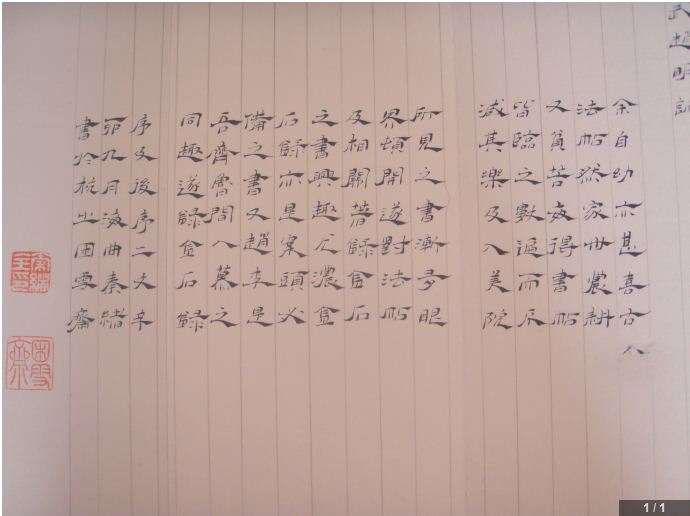 武趙明誠
余自幼亦甚喜古人
法帖然家世農耕
又貧苦每得書帖
皆臨之數過而不
減其樂及入美院
所見之書漸多眼
界頓開遂對法帖
及相關著錄金石
之書興趣尤濃金
石錄亦是案頭必
備之書又趙李是
吾齊魯間人慕之
同趣遂錄金石錄
序及後序二文辛
卯九月海曲秦緒
書於杭之困雪齋
1 / 1